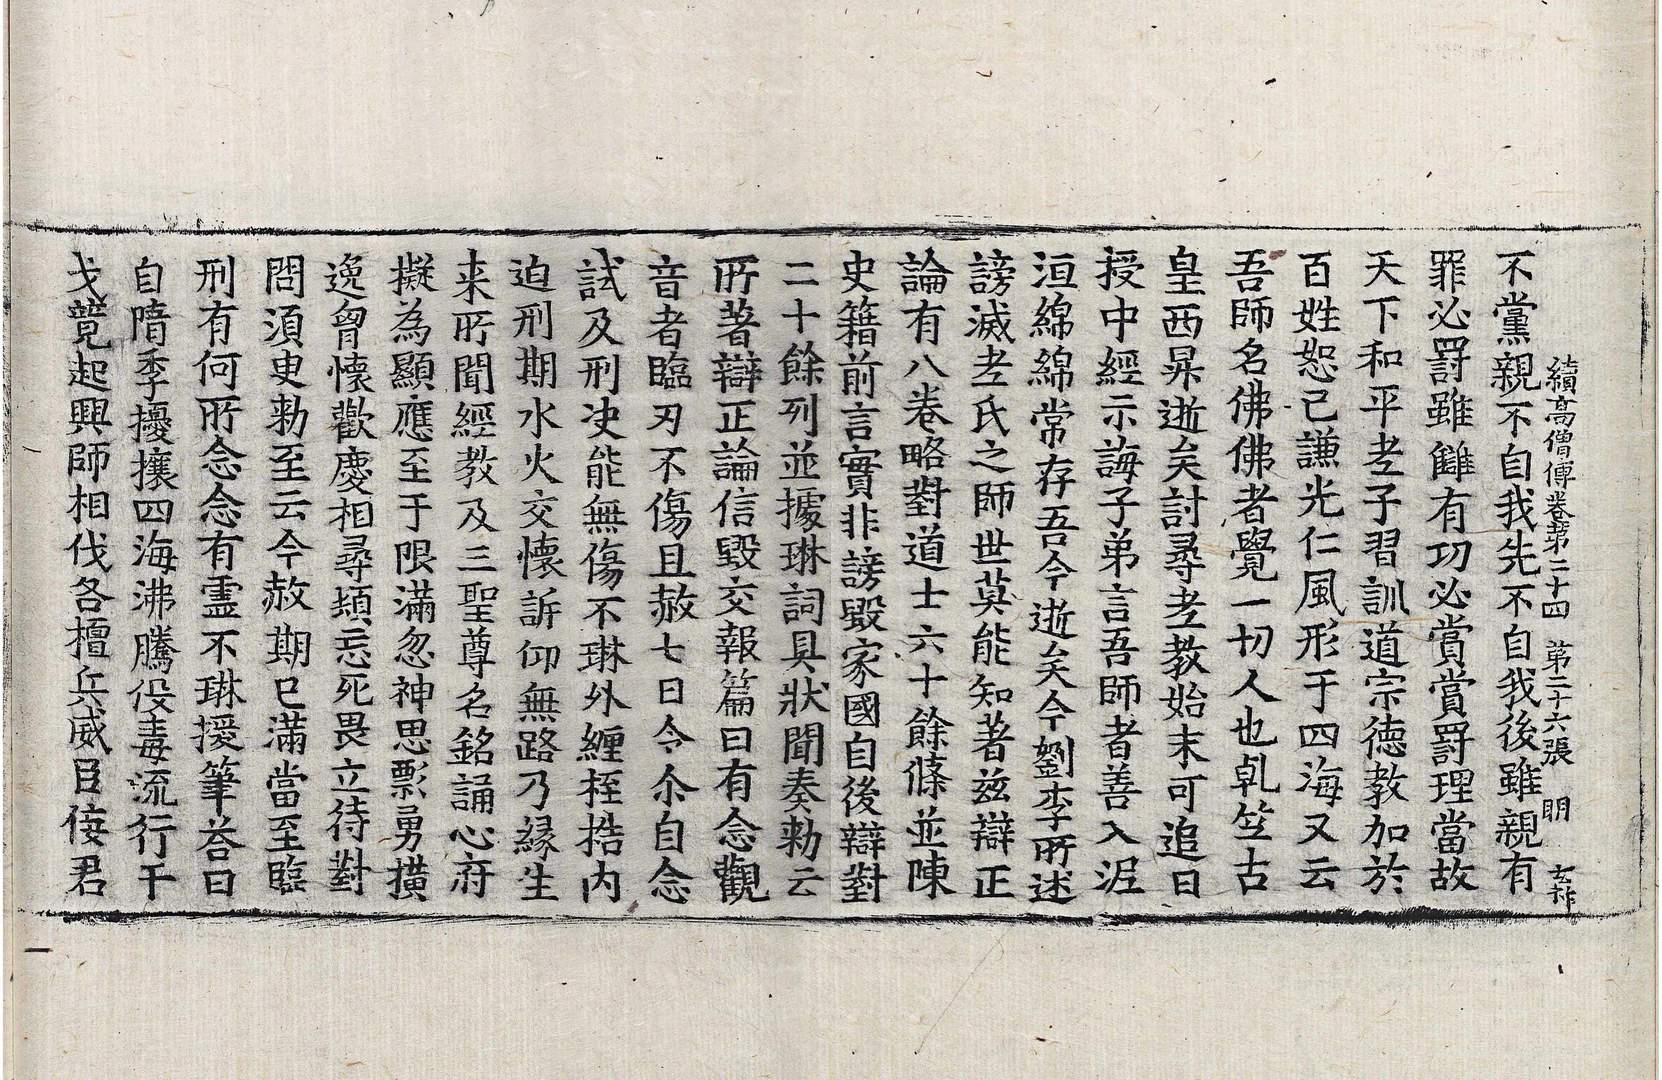 續高僧傳卷第二十四 第二十六張 明 玄祚
不黨親不自我先不自我後雖親有
罪必罸雖讎有功必賞賞罸理當故
天下和平老子習訓道宗德教加於
百姓恕己謙光仁風形于四海又云
吾師名佛佛者覺一切人也乹竺古
皇西昇逝矣討尋老教始末可追曰
授中經示誨子弟言吾師者善入泥
洹綿綿常存吾今逝矣今劉李所述
謗滅老氏之師世莫能知著兹辯正
論有八卷略對道士六十餘條並陳
史籍前言實非謗毀家國自後辯對
二十餘列並據琳詞具狀聞奏勑云
所著辯正論信毀交報篇曰有念觀
音者臨刃不傷且赦七日令尒自念
試及刑决能無傷不琳外纏桎梏内
迫刑期水火交懷訴仰無路乃緣生
来所聞經教及三聖尊名銘誦心府
擬為顯應至于限滿忽神思彯勇橫
逸胷懷歡慶相尋頓忘死畏立待對
問須臾勑至云今赦期已滿當至臨
刑有何所念念有靈不琳援筆荅曰
自隋季擾攘四海沸騰役毒流行干
戈競起興師相伐各擅兵威臣佞君